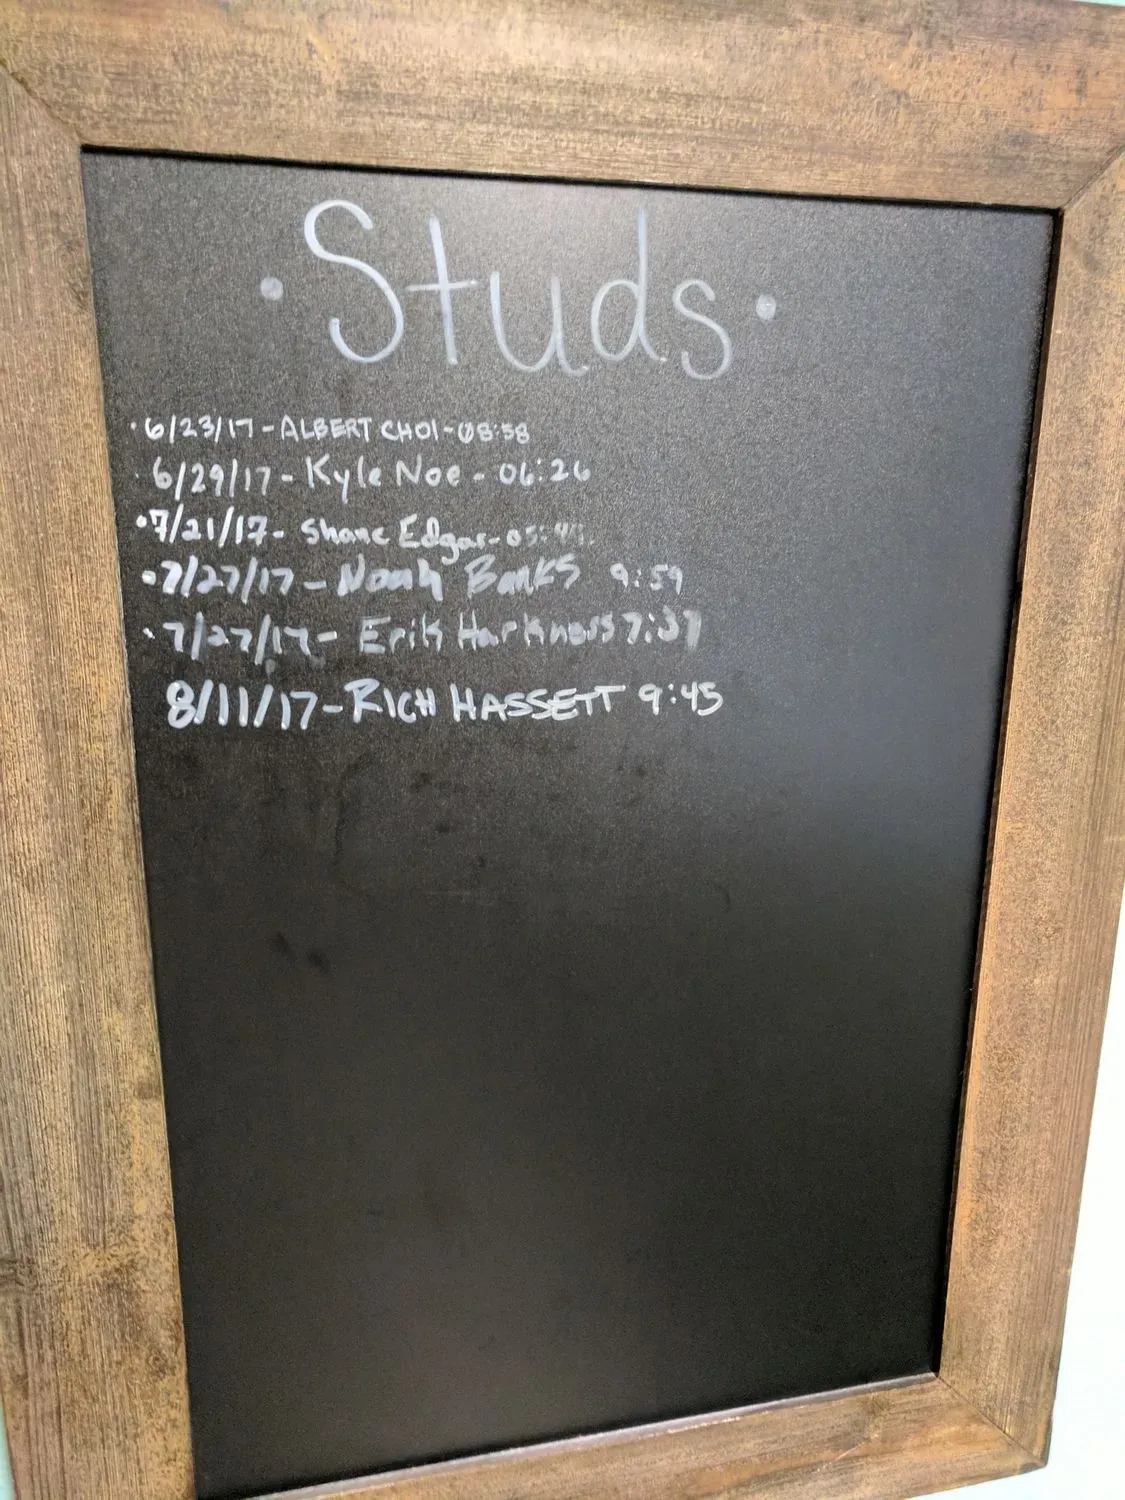 · Studs ·
· 6/23/17 - ALBERT CHOI - 08:58
· 6/29/17 - Kyle Noe - 06:26
· 7/21/17 - Shane Edgar -
· 7/27/17 - Noah Banks 9:59
· 7/27/17 - Erik Harkness 7:37
8/11/17 - RICH HASSETT 9:45